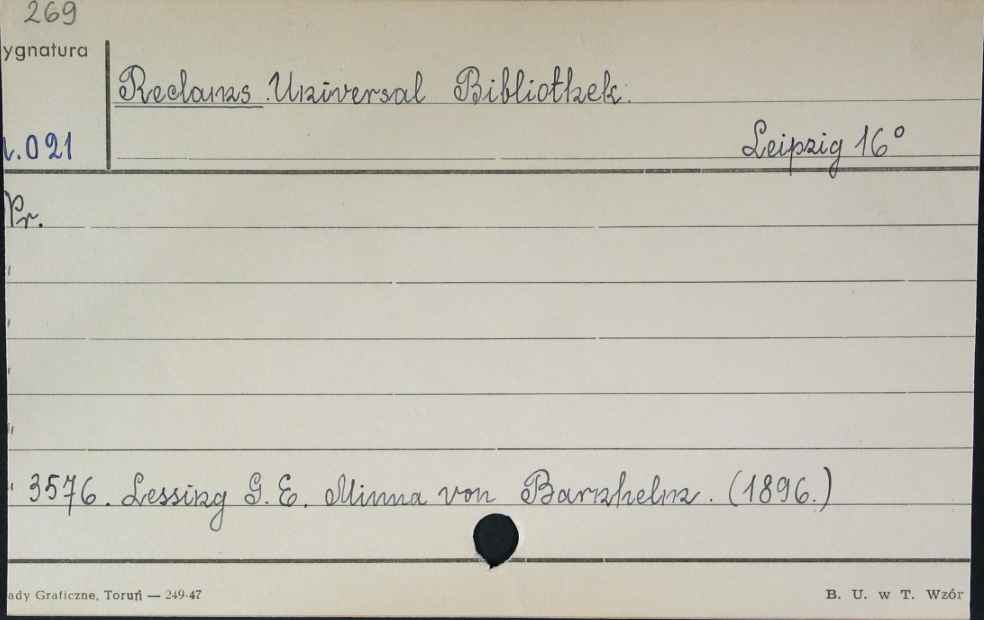 269
ygnatura
Reclams Universal Bibliothek.
.021
Leipzig 16°
Pr.
"
"
"
"
" 3576. Lessing G. E. Minna von Barnhelm. (1896.)
ady Graficzne, Toruń — 249-47
B. U. w T. Wzór